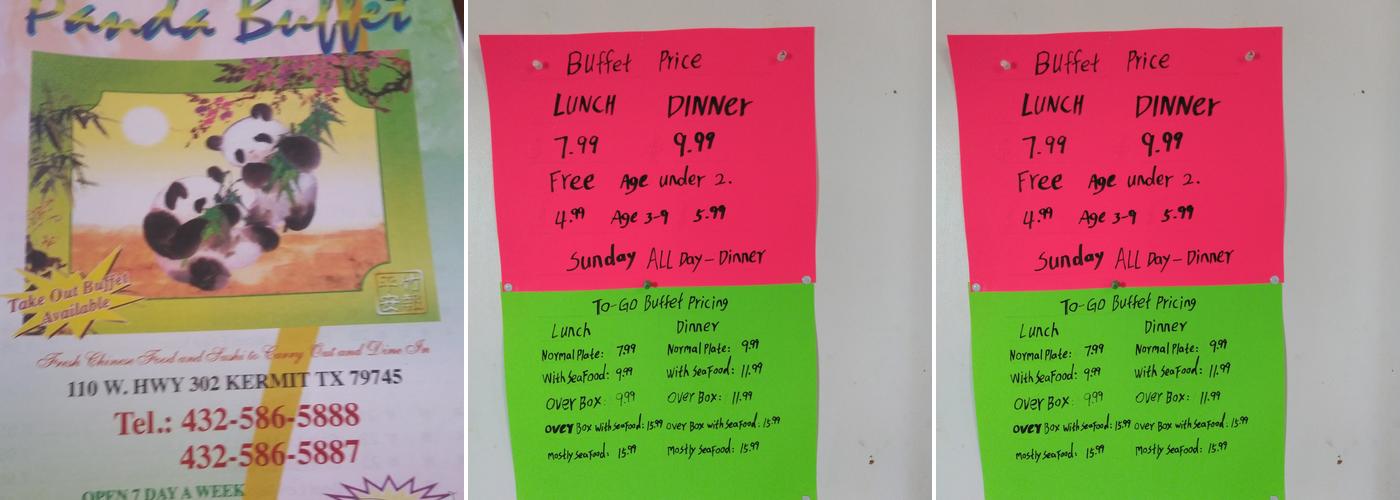 Panda Buffet
Take Out Buffet
Available
Fresh Chinese Food and Sushi to Carry Out and Dine In
110 W. HWY 302 KERMIT TX 79745
Tel.: 432-586-5888
432-586-5887
OPEN 7 DAY A WEEK
Buffet Price
LUNCH DINNer
7.99 9.99
Free Age under 2.
4.99 Age 3-9 5.99
Sunday ALL Day - Dinner
TO-GO Buffet Pricing
Lunch Dinner
Normal Plate: 7.99 Normal Plate: 9.99
With SeaFood: 9.99 With SeaFood: 11.99
OVer Box: 9.99 OVer Box: 11.99
OVer Box with seafood: 15.99 OVer Box with seafood: 15.99
Mostly SeaFood: 15.99 Mostly SeaFood: 15.99
Buffet Price
LUNCH DINNer
7.99 9.99
Free Age under 2.
4.99 Age 3-9 5.99
Sunday ALL Day - Dinner
TO-GO Buffet Pricing
Lunch Dinner
Normal Plate: 7.99 Normal Plate: 9.99
With SeaFood: 9.99 With SeaFood: 11.99
OVer Box: 9.99 OVer Box: 11.99
OVer Box with seafood: 15.99 OVer Box with seafood: 15.99
Mostly SeaFood: 15.99 Mostly SeaFood: 15.99